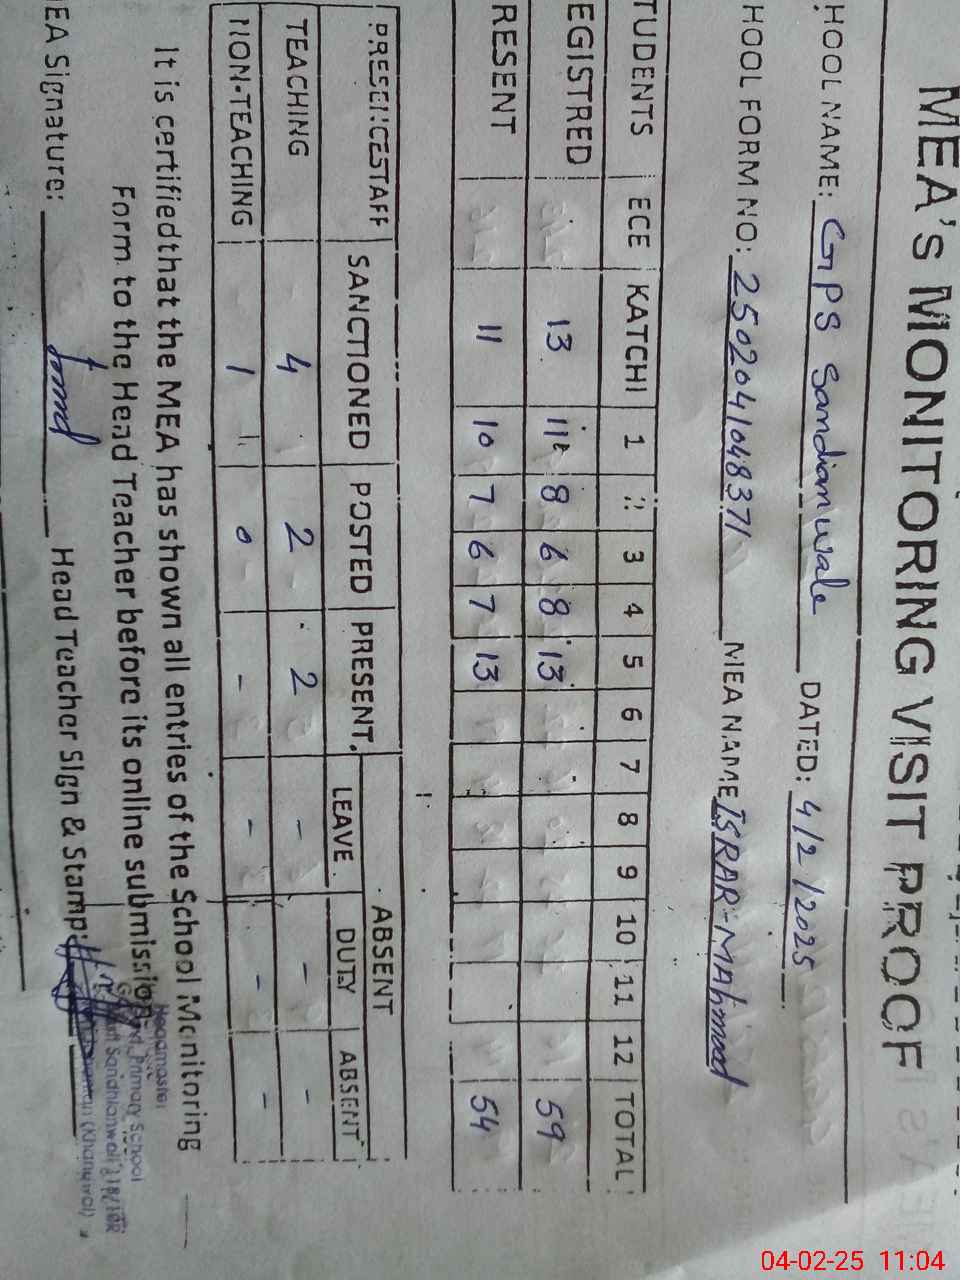 MEA'S MONITORING VISIT PROOF
HOOL NAME: GPS Sandianwale DATED: 4/2/2025
HOOL FORM NO: 250204104837 1 MEA NAME ISRAR-MAhmood
TUDENTS ECE KATCHI 1 2 3 4 5 6 7 8 9 10 11 12 TOTAL
EGISTRED 13 11 8 6 8 13 59
RESENT 11 10 7 6 7 13 54
PRESENCESTAFF SANCTIONED POSTED PRESENT ABSENT
LEAVE DUTY ABSENT
TEACHING 4 2 2 - - -
NON-TEACHING 1 0 - - - -
It is certified that the MEA has shown all entries of the School Monitoring
Form to the Head Teacher before its online submission.
EA Signature: Head Teacher Sign & Stamp:
Headmaster
Primary School
(Khanewal)
04-02-25 11:04